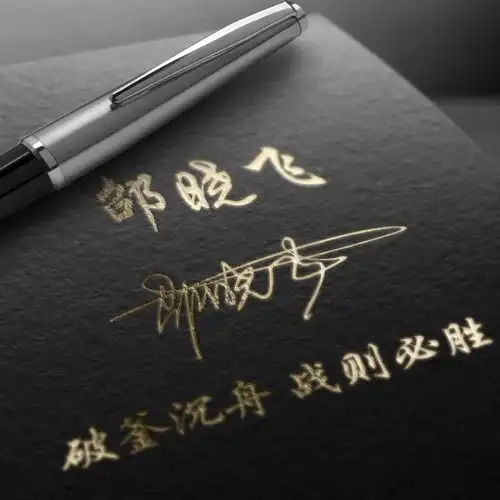 郜晓飞
破釜沉舟 战则必胜